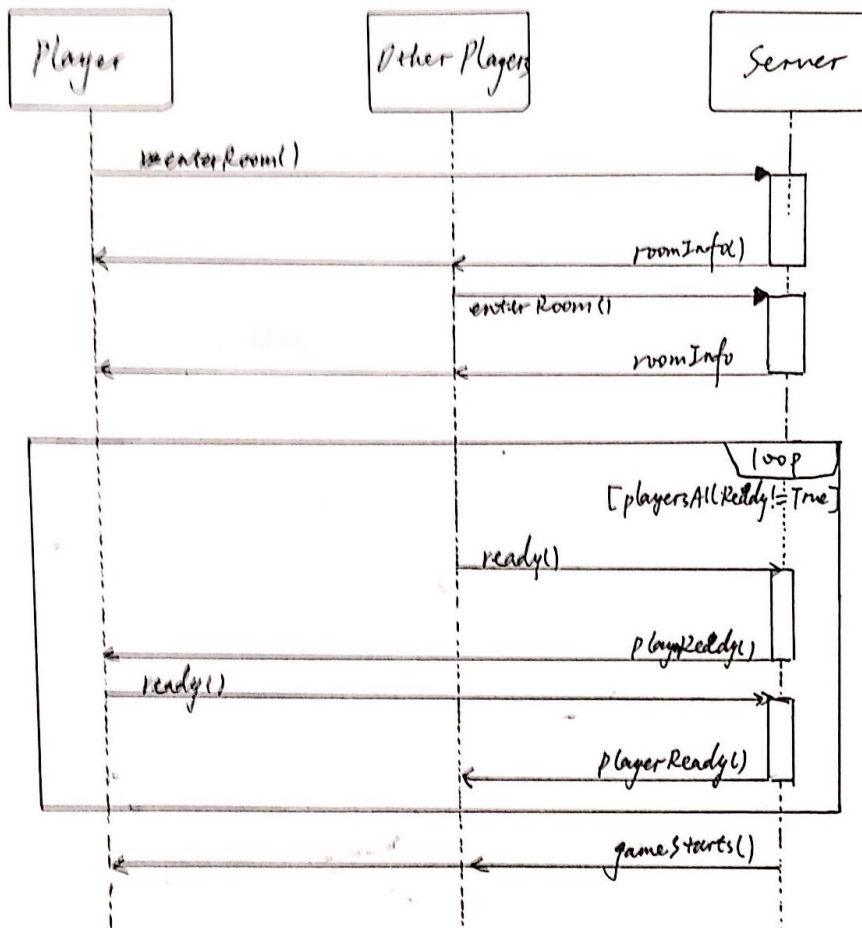 Player
Other Players
Server
enterRoom()
roomInfo()
enterRoom()
roomInfo
loop
[playersAllReady!=True]
ready()
playerReady()
ready()
playerReady()
gameStarts()